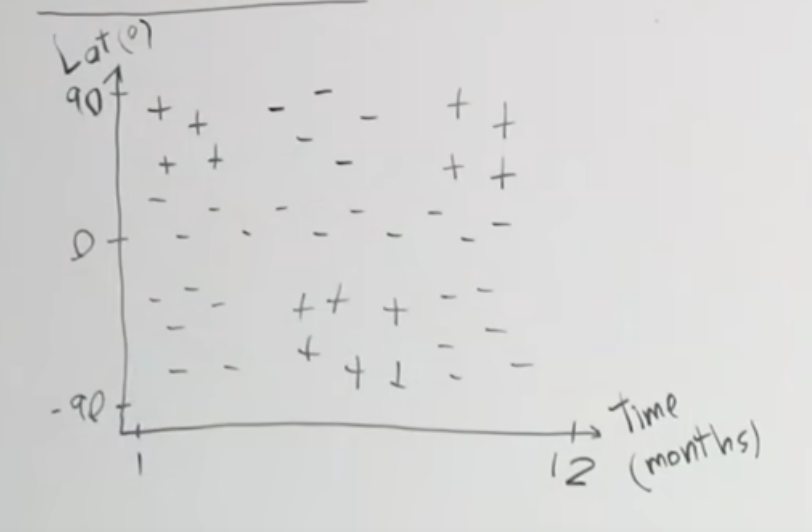 Lat(°)
90
+ + - - - + +
+ + - - + +
- - - - - -
0 - - - - - -
- - - + + + - -
- + - -
- - + - -
-90
1 12 Time
(months)